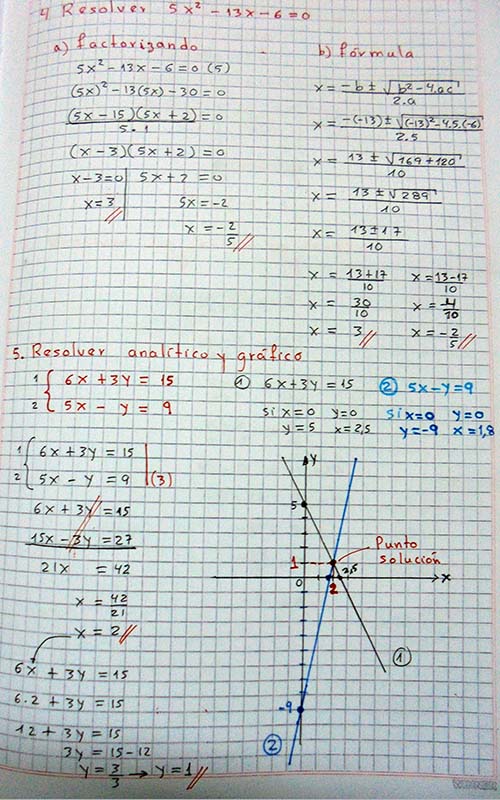 4 Resolver 5x² - 13x - 6 = 0
a) factorizando
5x² - 13x - 6 = 0 (5)
(5x)² - 13(5x) - 30 = 0
(5x - 15)(5x + 2) = 0
5·1
(x - 3)(5x + 2) = 0
x - 3 = 0 | 5x + 2 = 0
x = 3 5x = -2
x = -2/5
b) fórmula
x = (-b ± √(b² - 4.a.c))/2.a
x = (-(-13) ± √((-13)² - 4.5.(-6)))/2.5
x = (13 ± √(169 + 120))/10
x = (13 ± √289)/10
x = (13 ± 17)/10
x = (13 + 17)/10 x = (13 - 17)/10
x = 30/10 x = 4/10
x = 3 x = -2/5
5. Resolver analítico y gráfico
1 { 6x + 3y = 15
2 { 5x - y = 9
① 6x + 3y = 15
si x = 0 y = 0
y = 5 x = 2,5
② 5x - y = 9
si x = 0 y = 0
y = -9 x = 1,8
1 { 6x + 3y = 15
2 { 5x - y = 9 | (3)
6x + 3y = 15
15x - 3y = 27
21x = 42
x = 42/21
x = 2
6x + 3y = 15
6.2 + 3y = 15
12 + 3y = 15
3y = 15 - 12
y = 3/3 → y = 1
y
5
Punto
solución
1
2,5
0
2
x
①
-9
②